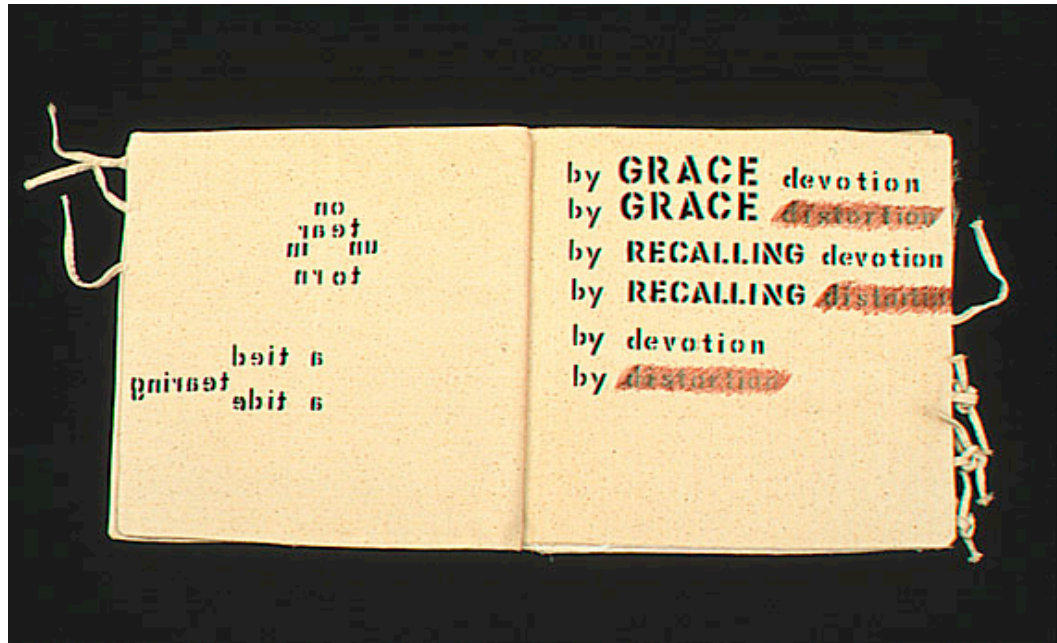 on
tear
un in
torn
a tied
tearing
a tide
by GRACE devotion
by GRACE distortion
by RECALLING devotion
by RECALLING distortion
by devotion
by distortion